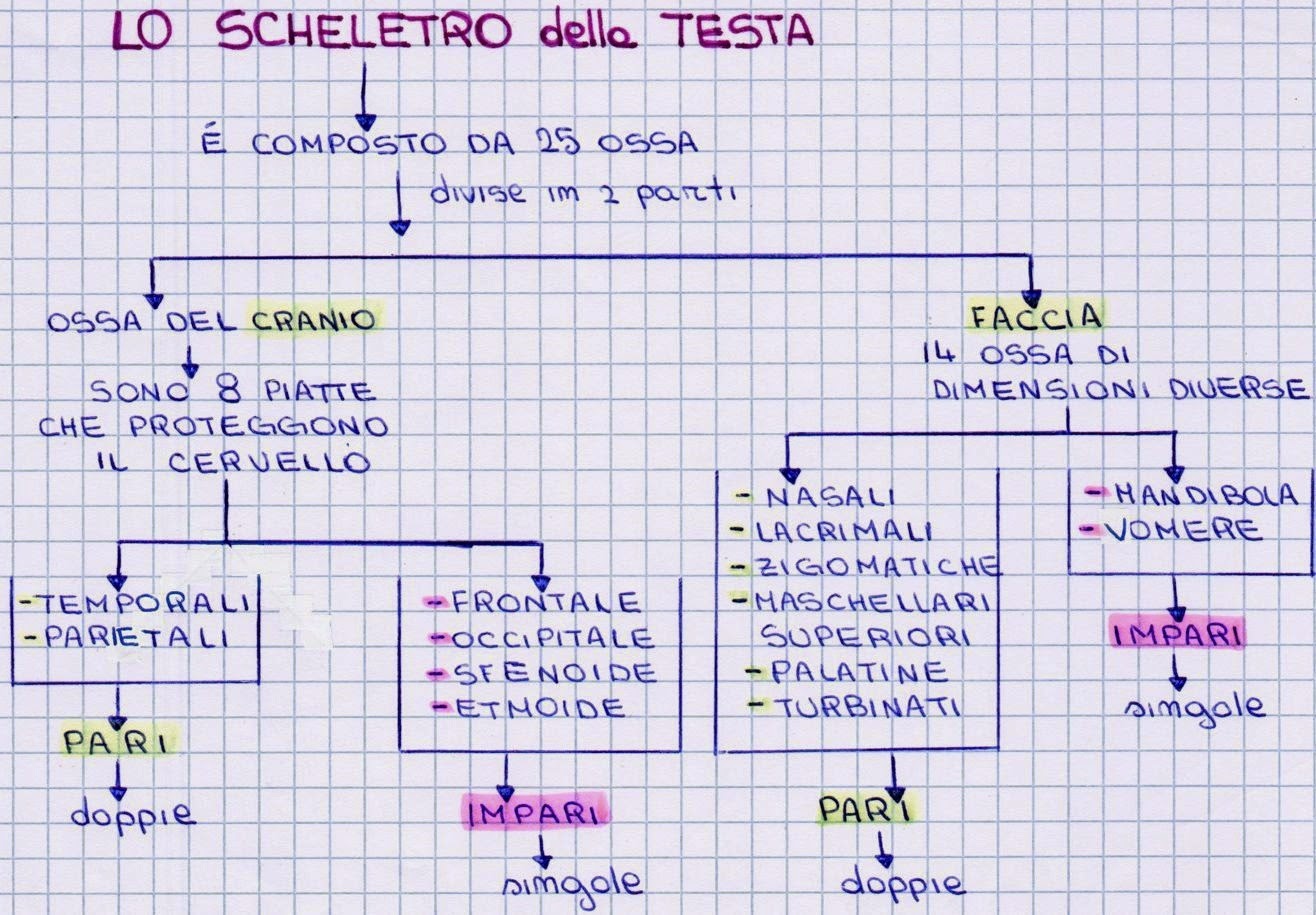 LO SCHELETRO della TESTA
É COMPOSTO DA 25 OSSA
divise in 2 parti
OSSA DEL CRANIO
SONO 8 PIATTE
CHE PROTEGGONO
IL CERVELLO
-TEMPORALI
-PARIETALI
PARI
doppie
-FRONTALE
-OCCIPITALE
-SFENOIDE
-ETMOIDE
IMPARI
singole
FACCIA
14 OSSA DI
DIMENSIONI DIVERSE
- NASALI
- LACRIMALI
- ZIGOMATICHE
-MASCHELLARI
SUPERIORI
- PALATINE
- TURBINATI
PARI
doppie
-MANDIBOLA
-VOMERE
IMPARI
singole